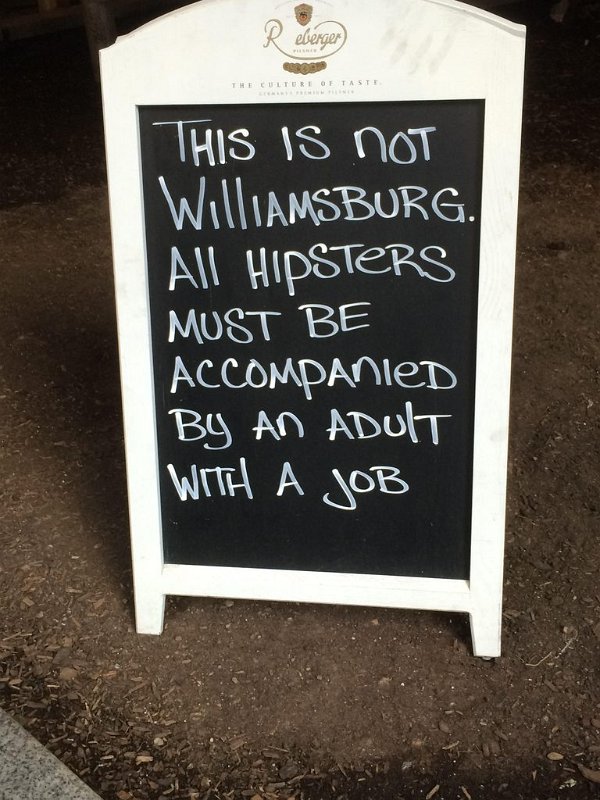 R eberger
PILSNER
THE CULTURE OF TASTE.
GERMANY'S PREMIUM PILSNER
THIS IS nOT
WIllIAMSBURG.
All HIpSTeRS
MUST BE
ACCOMPAnIeD
By An ADUlT
WITH A JOB